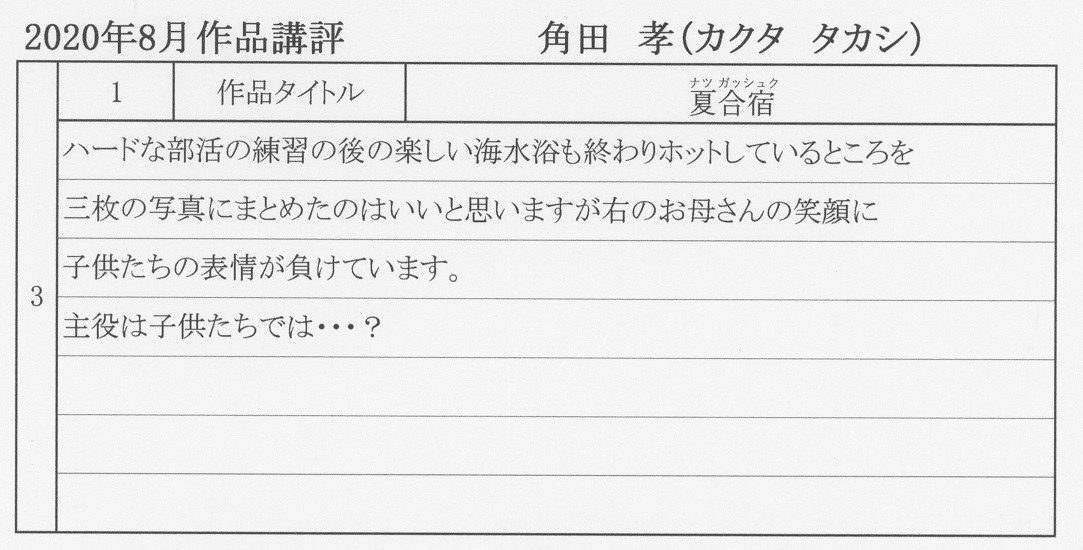 2020年8月作品講評 角田 孝(カクタ タカシ)
1 作品タイトル 夏合宿
ナツ ガッシュク
3
ハードな部活の練習の後の楽しい海水浴も終わりホットしているところを
三枚の写真にまとめたのはいいと思いますが右のお母さんの笑顔に
子供たちの表情が負けています。
主役は子供たちでは・・・?